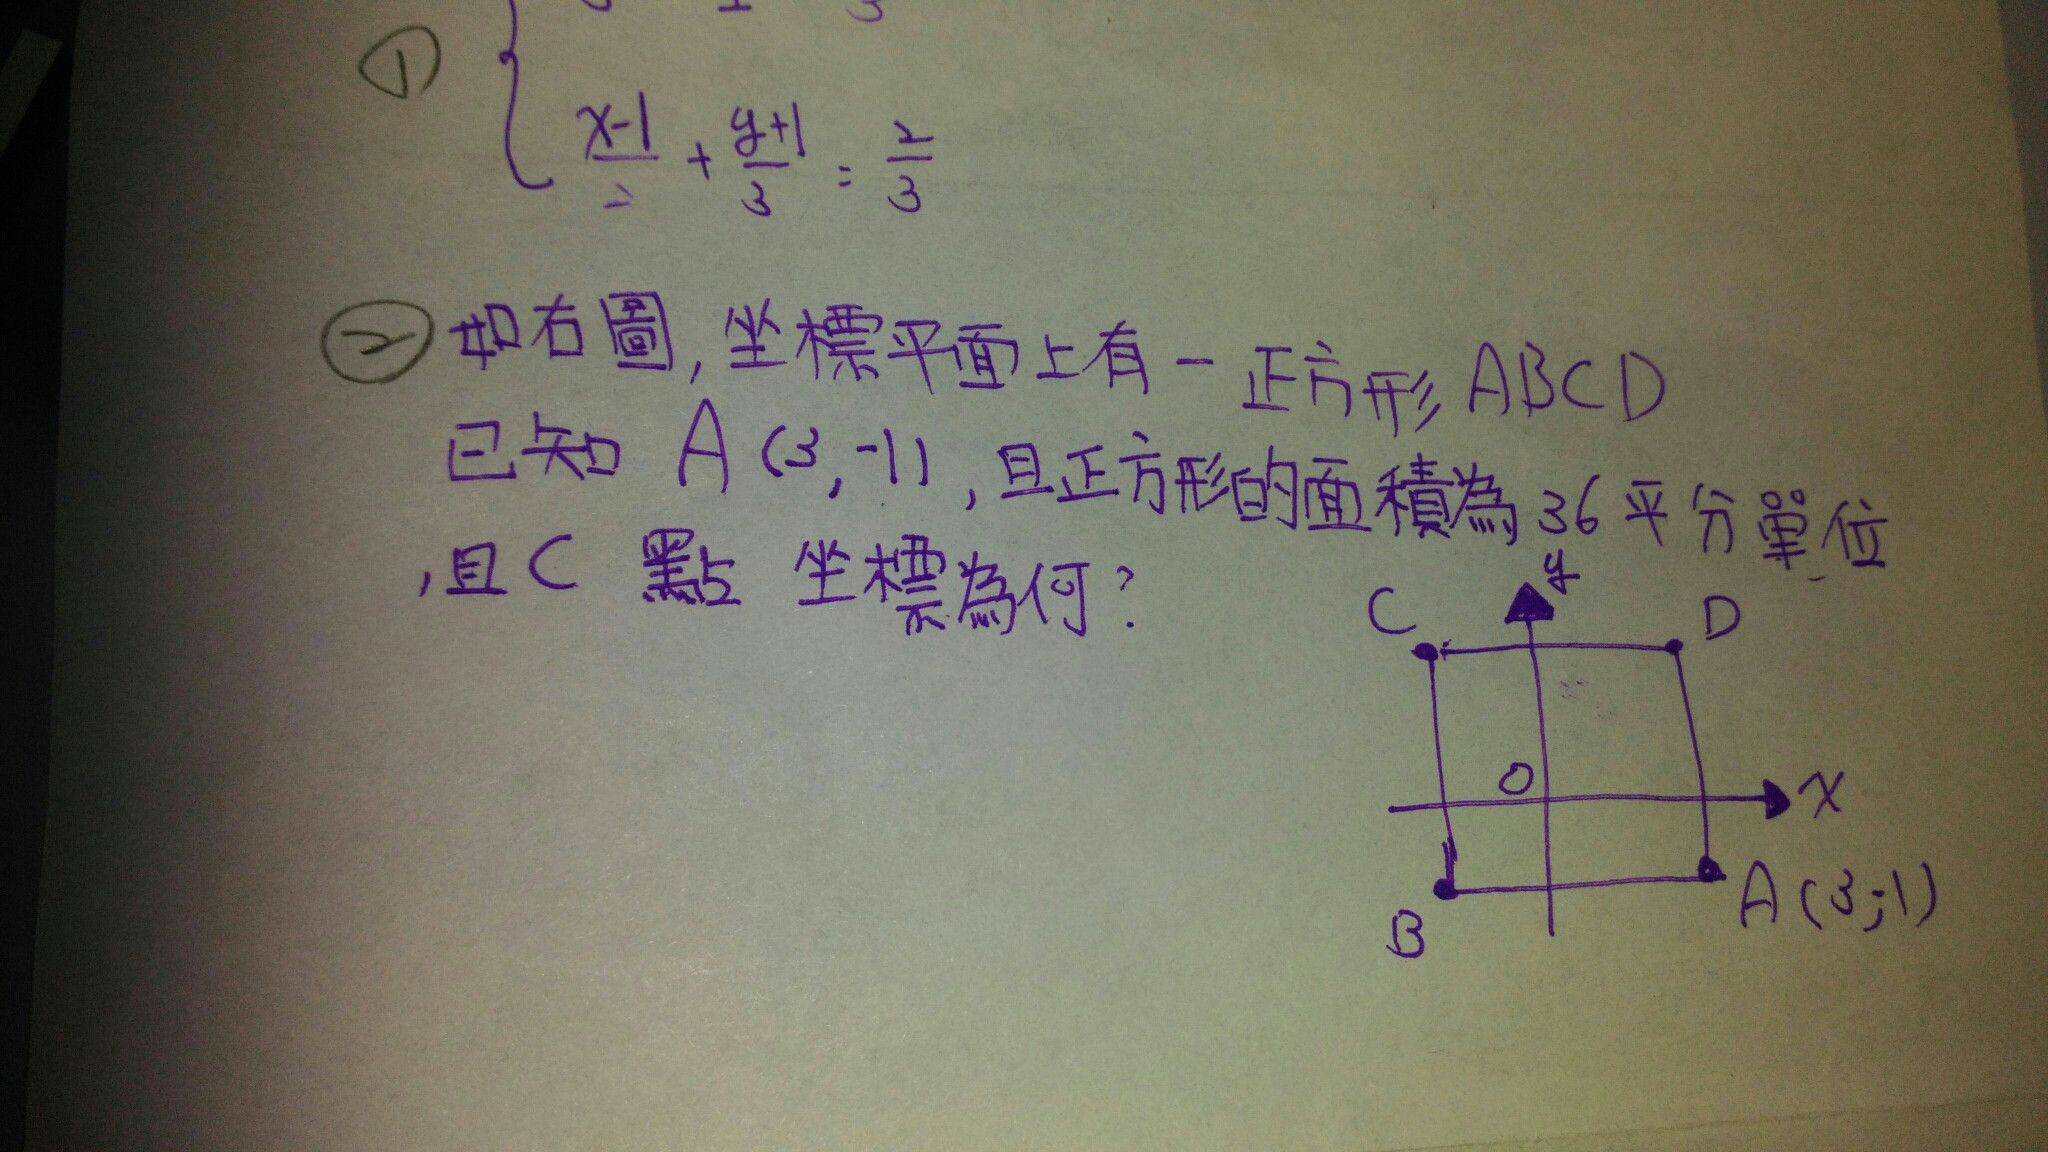 ①
x-1/2 + y+1/3 = 2/3
② 如右圖, 坐標平面上有一正方形 ABCD
已知 A (3, -1) , 且正方形的面積為 36 平方單位
, 且 C 點 坐標為何?
y
C D
O x
B A (3,-1)